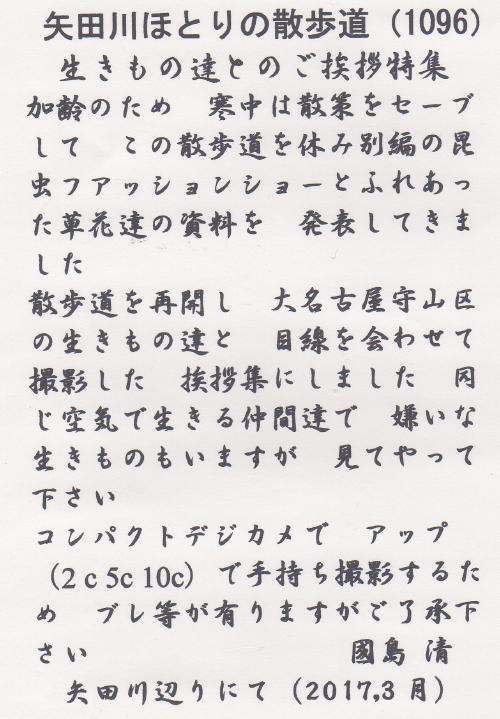 矢田川ほとりの散歩道（1096）
生きもの達とのご挨拶特集
加齢のため　寒中は散策をセーブ
して　この散歩道を休み別編の昆
虫ファッションショーとふれあっ
た草花達の資料を　発表してきま
した
散歩道を再開し　大名古屋守山区
の生きもの達と　目線を会わせて
撮影した　挨拶集にしました　同
じ空気で生きる仲間達で　嫌いな
生きものもいますが　見てやって
下さい
コンパクトデジカメで　アップ
（2ｃ5c 10c）で手持ち撮影するた
め　ブレ等が有りますがご了承下
さい　國島 清
矢田川辺りにて（2017,3月）